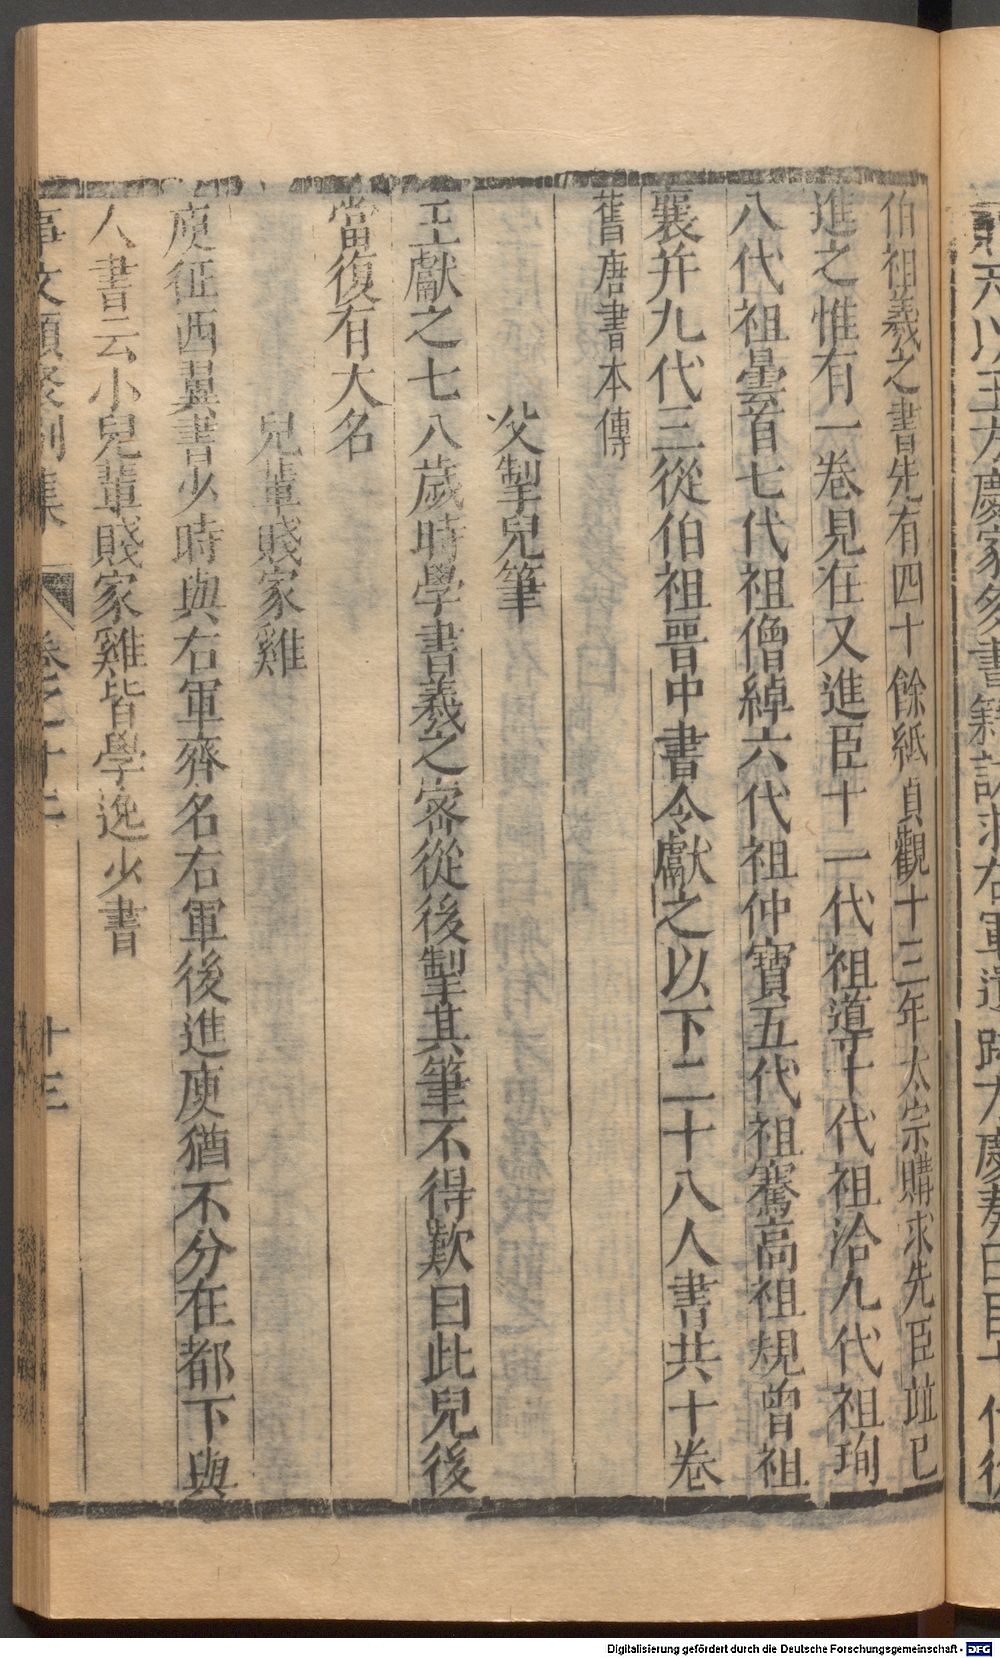 伯祖羲之書先有四十餘紙貞觀十三年太宗購求先臣竝已
進之惟有一卷見在又進臣十一代祖導十代祖洽九代祖珣
八代祖曇首七代祖僧綽六代祖仲寶五代祖騫高祖規曾祖
襃并九代三從伯祖晉中書令獻之以下二十八人書共十卷
舊唐書本傳
父掣兒筆
王獻之七八歲時學書羲之密從後掣其筆不得歎曰此兒後
當復有大名
兒輩賤家雞
庾征西翼書少時與右軍齊名右軍後進庾猶不分在都下與
人書云小兒輩賤家雞皆學逸少書
事文類聚別集 卷之十二 十三
Digitalisierung gefördert durch die Deutsche Forschungsgemeinschaft - DFG